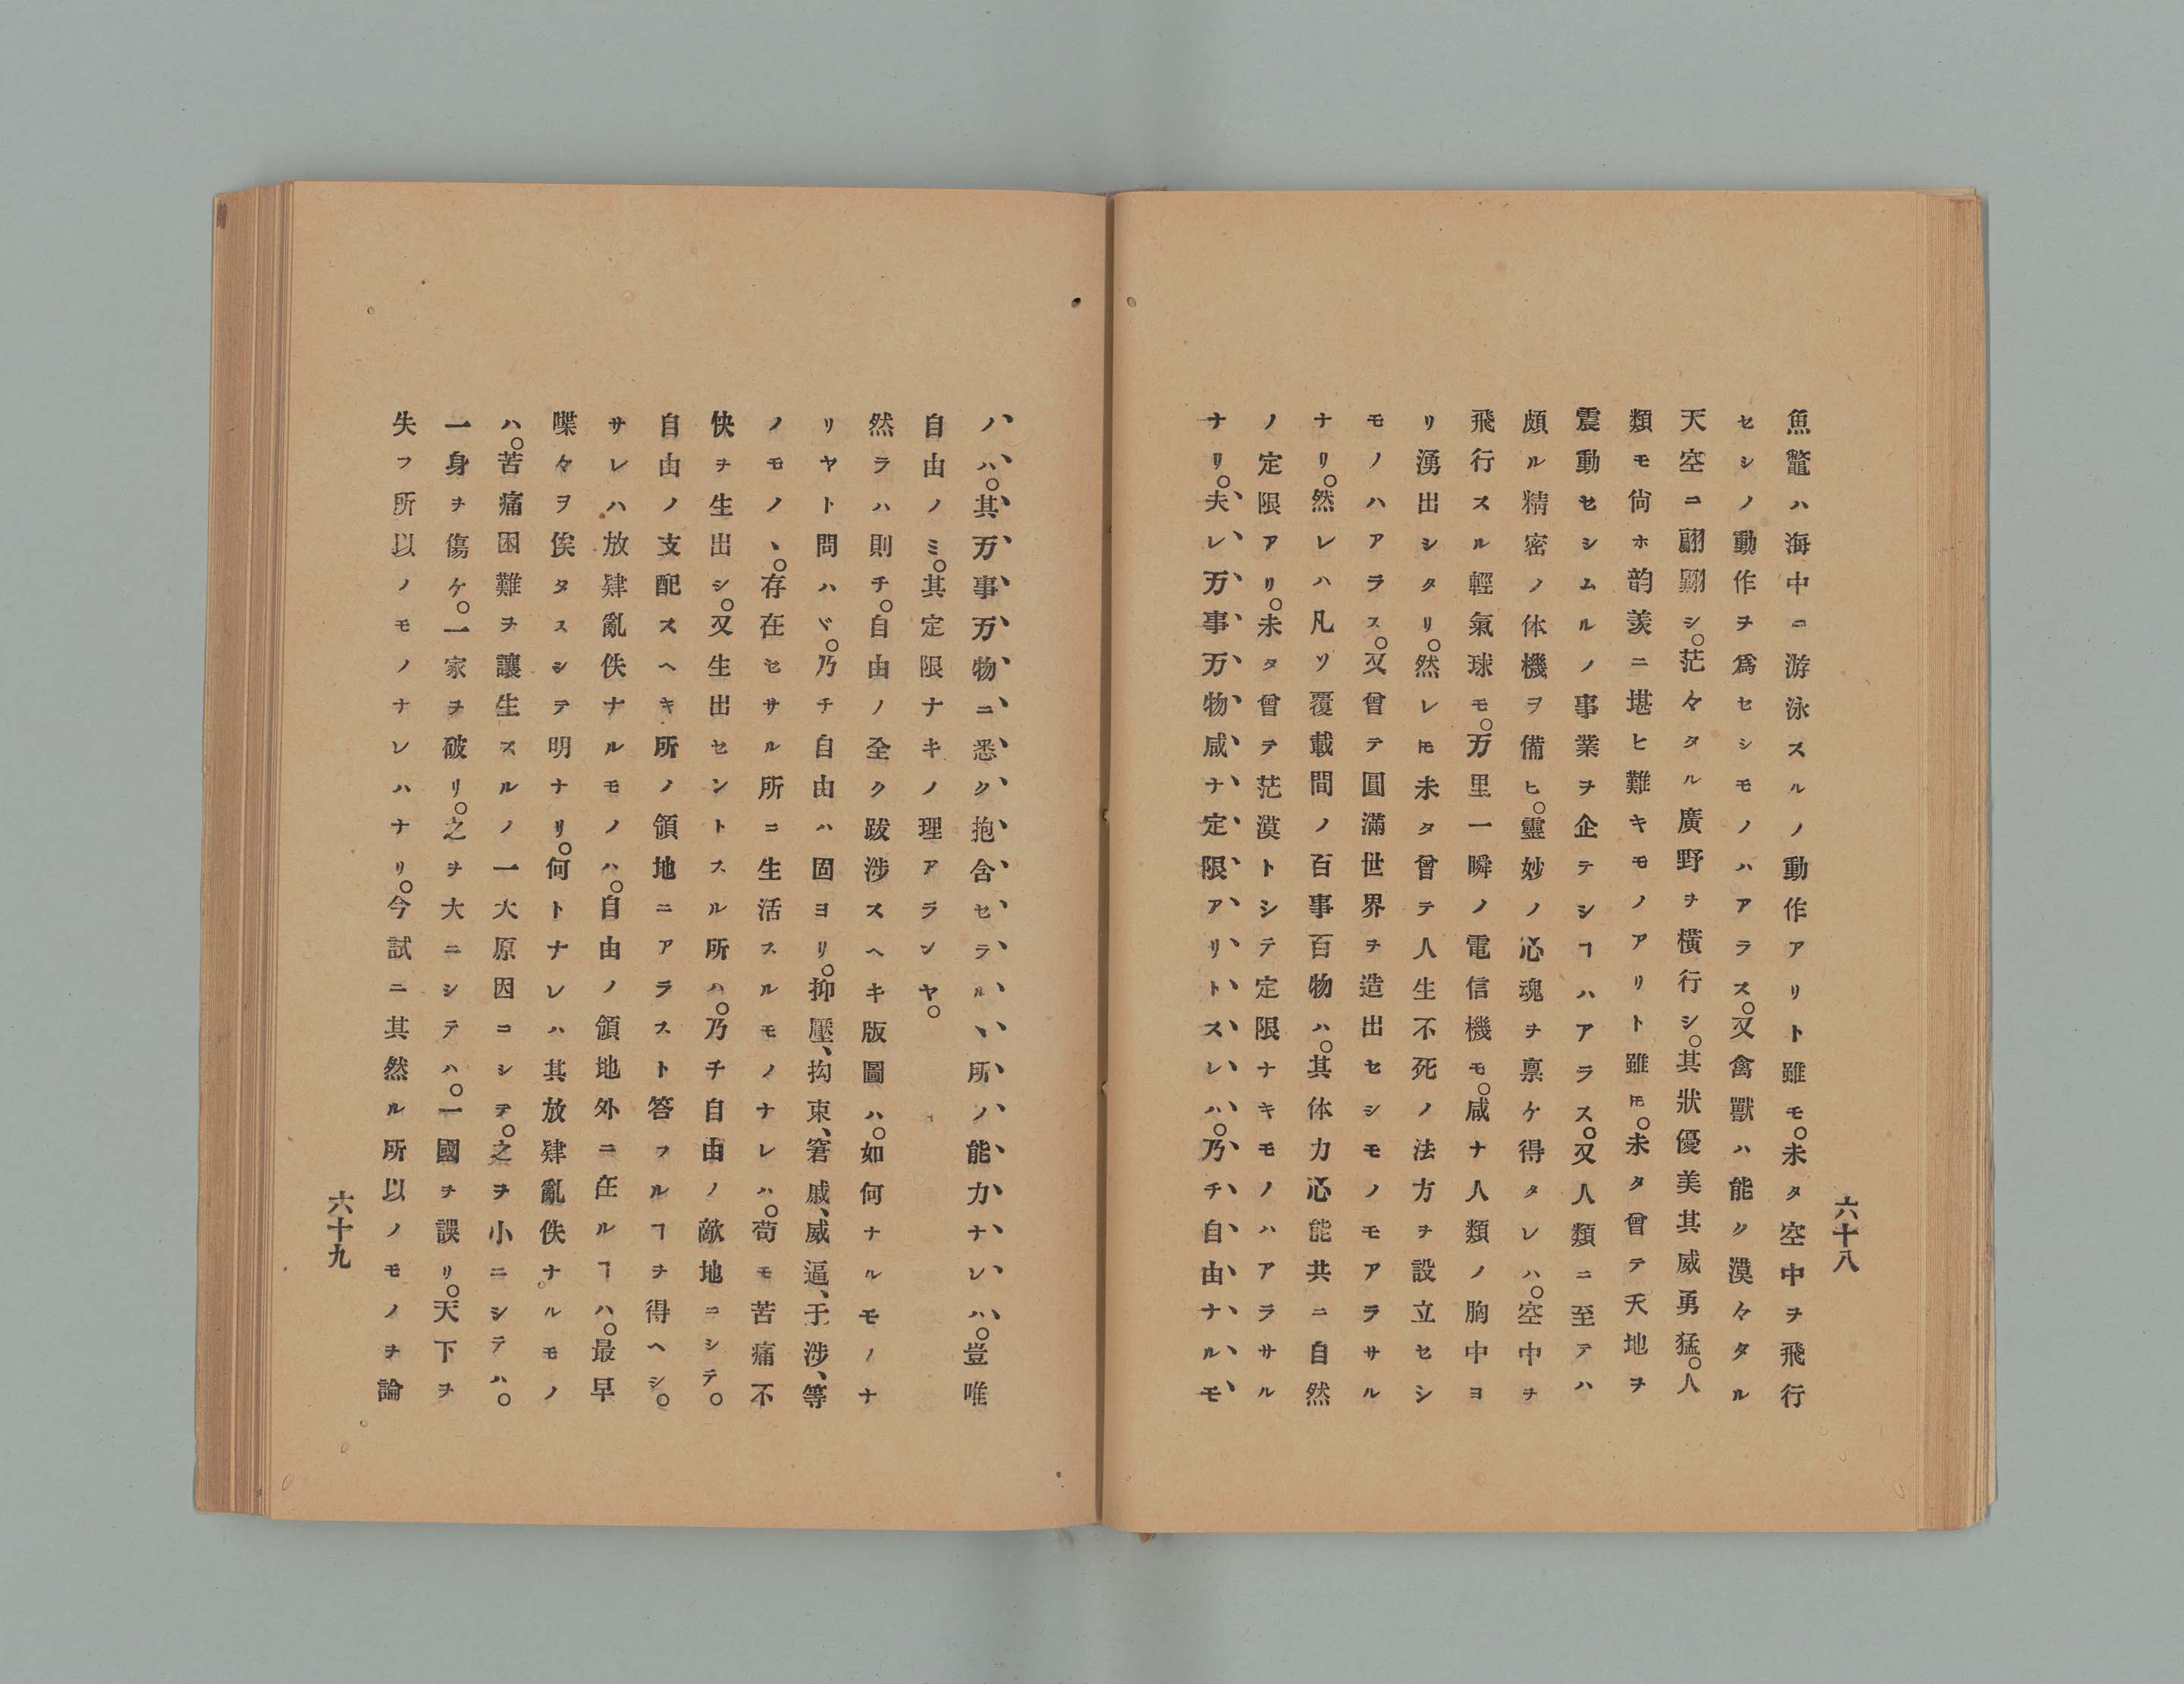 六十八
魚鼈ハ海中ニ游泳スルノ動作アリト雖モ。未タ空中ヲ飛行
セシノ動作ヲ爲セシモノハアラス。又禽獸ハ能ク漠々タル
天空ニ翩翻シ。茫々タル廣野ヲ橫行シ。其狀優美其威勇猛。人
類モ尙ホ韵羨ニ堪ヒ難キモノアリト雖𪜈。未タ曾テ天地ヲ
震動セシムルノ事業ヲ企テシヿハアラス。又人類ニ至テハ
頗ル精密ノ体機ヲ備ヒ。靈妙ノ心魂ヲ禀ケ得タレハ。空中ヲ
飛行スル輕氣球モ。万里一瞬ノ電信機モ。咸ナ人類ノ胸中ヨ
リ湧出シタリ。然レ𪜈未タ曾テ人生不死ノ法方ヲ設立セシ
モノハアラス。又曾テ圓滿世界ヲ造出セシモノモアラサル
ナリ。然レハ凡ソ覆載間ノ百事百物ハ。其体力心能共ニ自然
ノ定限アリ。未タ曾テ茫漠トシテ定限ナキモノハアラサル
ナリ。夫レ万事万物咸ナ定限アリトスレハ。乃チ自由ナルモ
ノハ。其万事万物ニ悉ク抱含セラルヽ所ノ能力ナレハ。豈唯
自由ノミ。其定限ナキノ理アランヤ。
然ラハ則チ。自由ノ全ク跋涉スヘキ版圖ハ。如何ナルモノナ
リヤト問ハヾ。乃チ自由ハ固ヨリ。抑壓、拘束、窘戚、威逼、于涉、等
ノモノヽ。存在セサル所ニ生活スルモノナレハ。苟モ苦痛不
快ヲ生出シ。又生出セントスル所ハ。乃チ自由ノ敵地ニシテ。
自由ノ支配スヘキ所ノ領地ニアラスト答フルヿヲ得ヘシ。
サレハ放肆亂佚ナルモノハ。自由ノ領地外ニ在ルヿハ。最早
喋々ヲ俟タスシテ明ナリ。何トナレハ其放肆亂佚ナルモノ
ハ。苦痛困難ヲ讓生スルノ一大原因ニシテ。之ヲ小ニシテハ。
一身ヲ傷ケ。一家ヲ破リ。之ヲ大ニシテハ。一國ヲ誤リ。天下ヲ
失フ所以ノモノナレハナリ。今試ニ其然ル所以ノモノヲ論
六十九